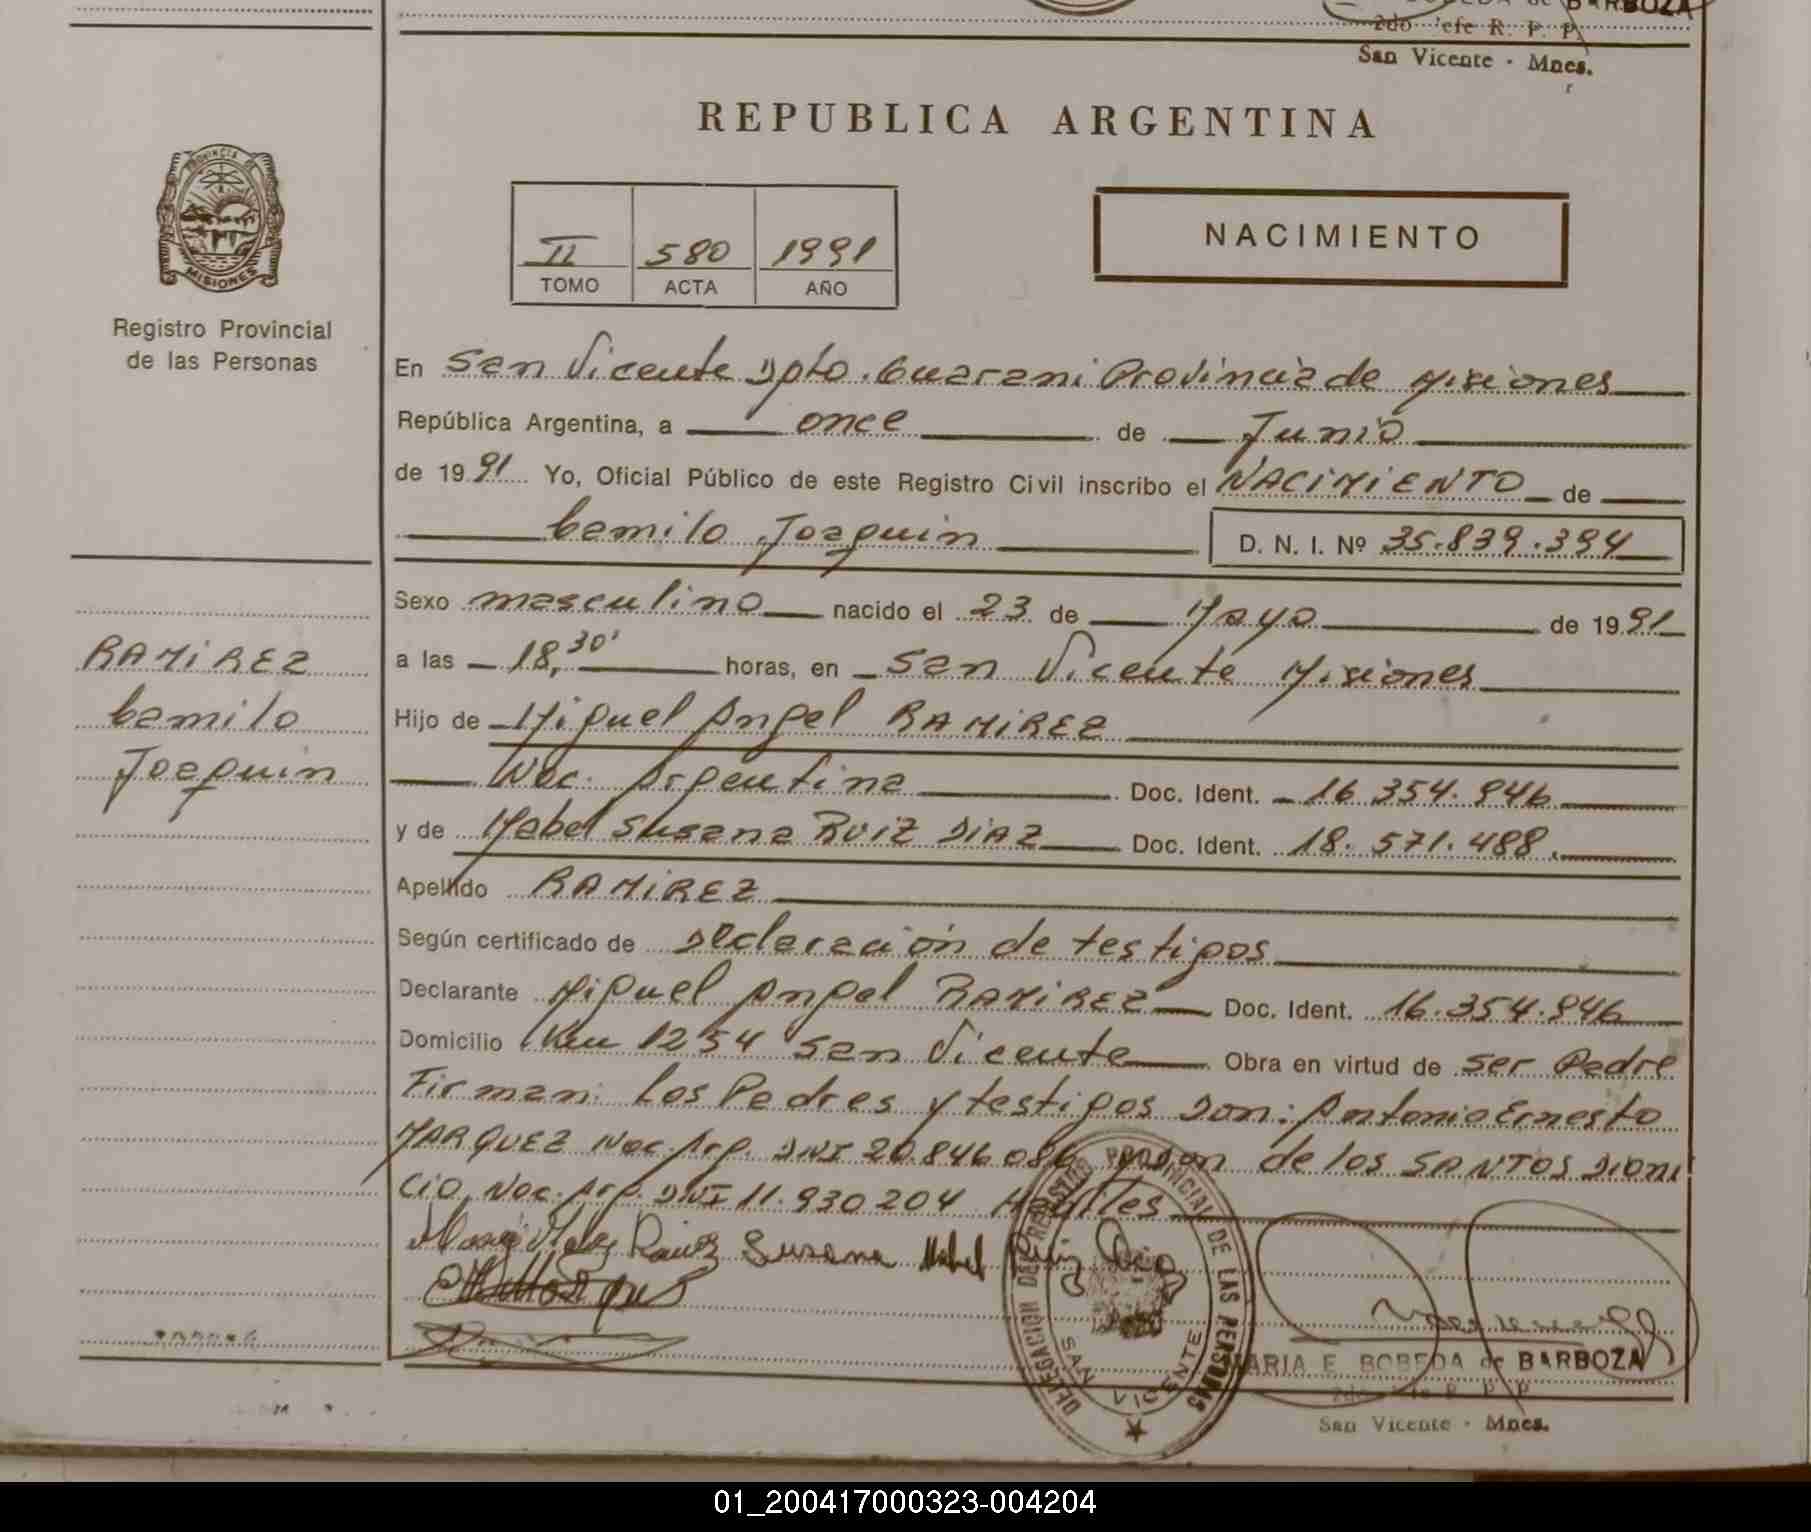 BOBEDA de BARBOZA
2do Jefe R. P. P.
San Vicente - Mnes.
REPUBLICA ARGENTINA
PROVINCIA DE
MISIONES
Registro Provincial
de las Personas
II 580 1991
TOMO ACTA AÑO
NACIMIENTO
En San Vicente Dpto. Guarani Provincia de Misiones
República Argentina, a once de Junio
de 1991 Yo, Oficial Público de este Registro Civil inscribo el NACIMIENTO de
Camilo Joaquin D. N. I. Nº 35.839.394
Sexo masculino nacido el 23 de Mayo de 1991
a las 18,30' horas, en San Vicente Misiones
Hijo de Miguel Angel RAMIREZ
Nac. Argentina Doc. Ident. 16.354.946
y de Mabel Susana RUIZ DIAZ Doc. Ident. 18.571.488.
Apellido RAMIREZ
Según certificado de Declaración de testigos
Declarante Miguel Angel RAMIREZ Doc. Ident. 16.354.946
Domicilio Km 1254 San Vicente Obra en virtud de ser Padre
Firman: Los Padres y testigos Don: Antonio Ernesto
MARQUEZ Nac. Arg. DNI 20.846.086 y Don de los SANTOS Dioni
cio, Nac. Arg. DNI 11.930.204 Habiles
Susana Mabel Ruiz Diaz
RAMIREZ
Camilo
Joaquin
DELEGACION DEL REGISTRO PROVINCIAL DE LAS PERSONAS
SAN VICENTE
MARIA E. BOBEDA de BARBOZA
2do Jefe R. P. P.
San Vicente - Mnes.
01_200417000323-004204